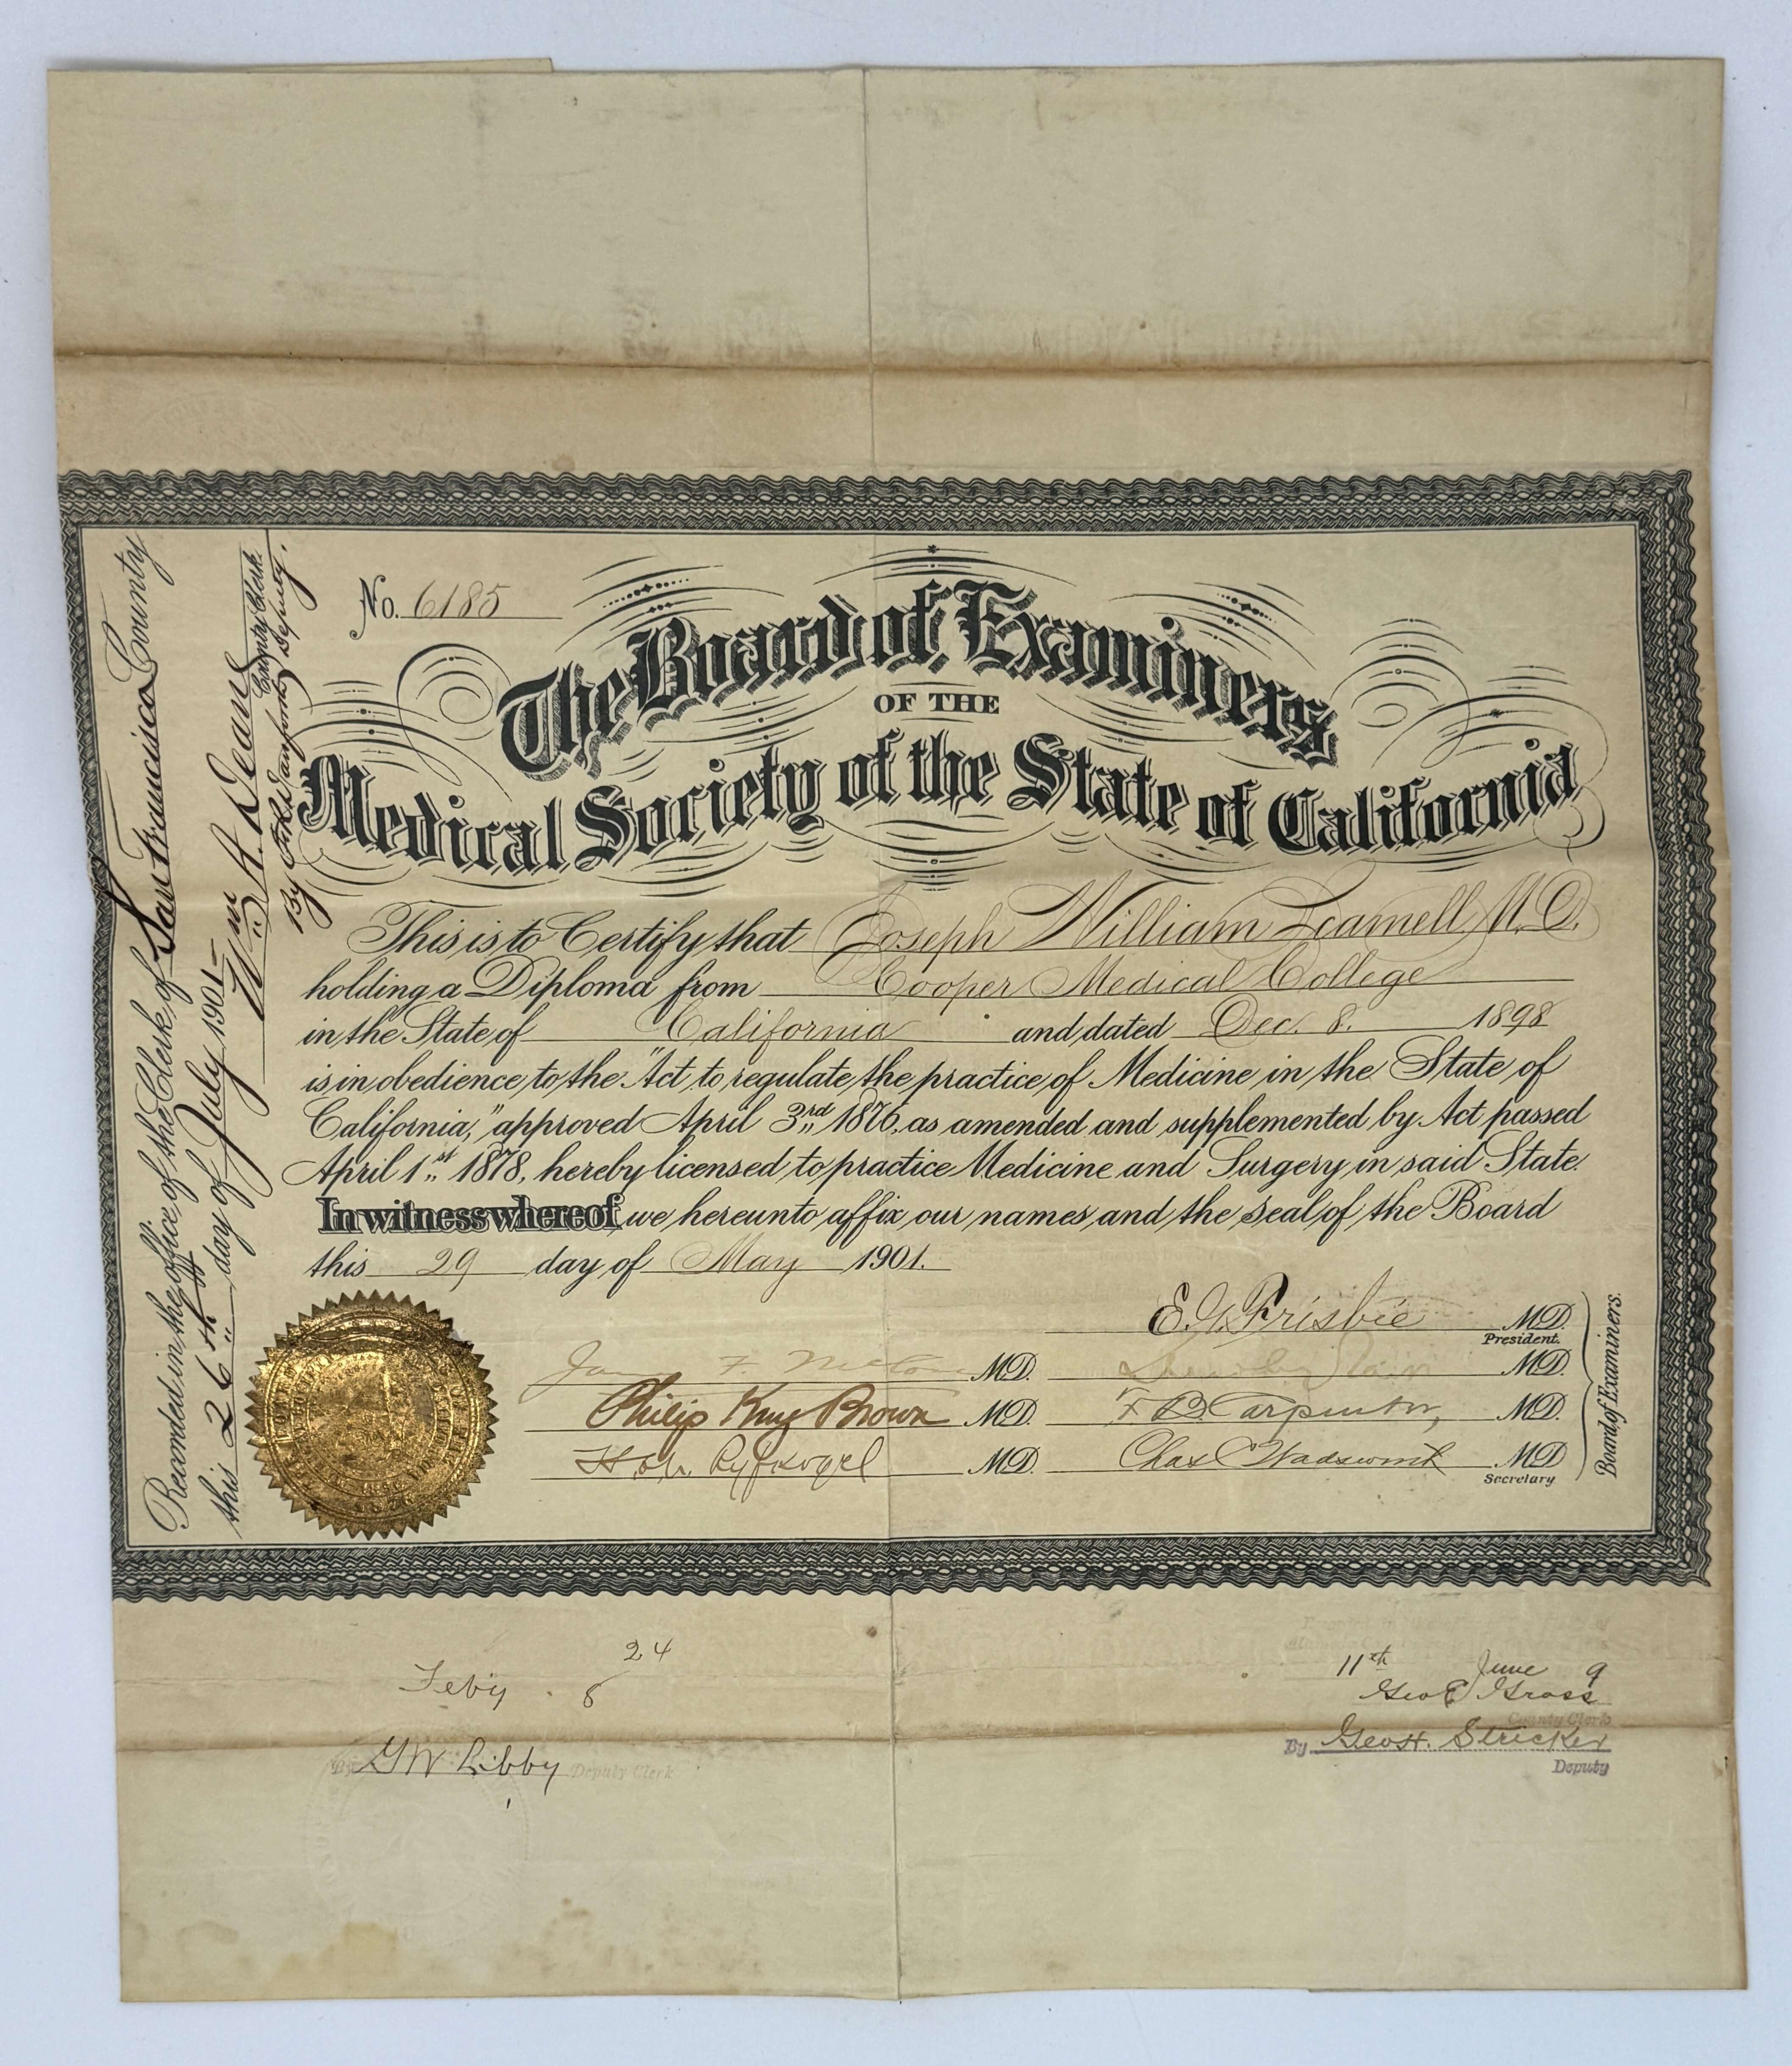 No. 6185
The Board of Examiners
OF THE
Medical Society of the State of California
This is to Certify that Joseph William Scamell M.D.
holding a Diploma from Cooper Medical College
in the State of California and dated Dec. 8. 1898
is in obedience to the "Act to regulate the practice of Medicine in the State of
California," approved April 3rd 1876, as amended and supplemented by Act passed
April 1st 1878, hereby licensed to practice Medicine and Surgery in said State.
In witness whereof we hereunto affix our names and the seal of the Board
this 29 day of May 1901.
E. G. Frisbie M.D.
President.
M.D. M.D.
Philip King Brown M.D. F B Carpenter, M.D.
M.D. Chas C Wadsworth M.D.
Secretary
Board of Examiners.
Recorded in the office of the Clerk of San Francisco County
this 26th day of July 1901
Wm A. Deane
County Clerk
By Danforth
Deputy.
24
Feb'y. 8
By G W Libby Deputy Clerk
11th June 9
Geo E Gross
County Clerk
By Geo H. Stricker
Deputy